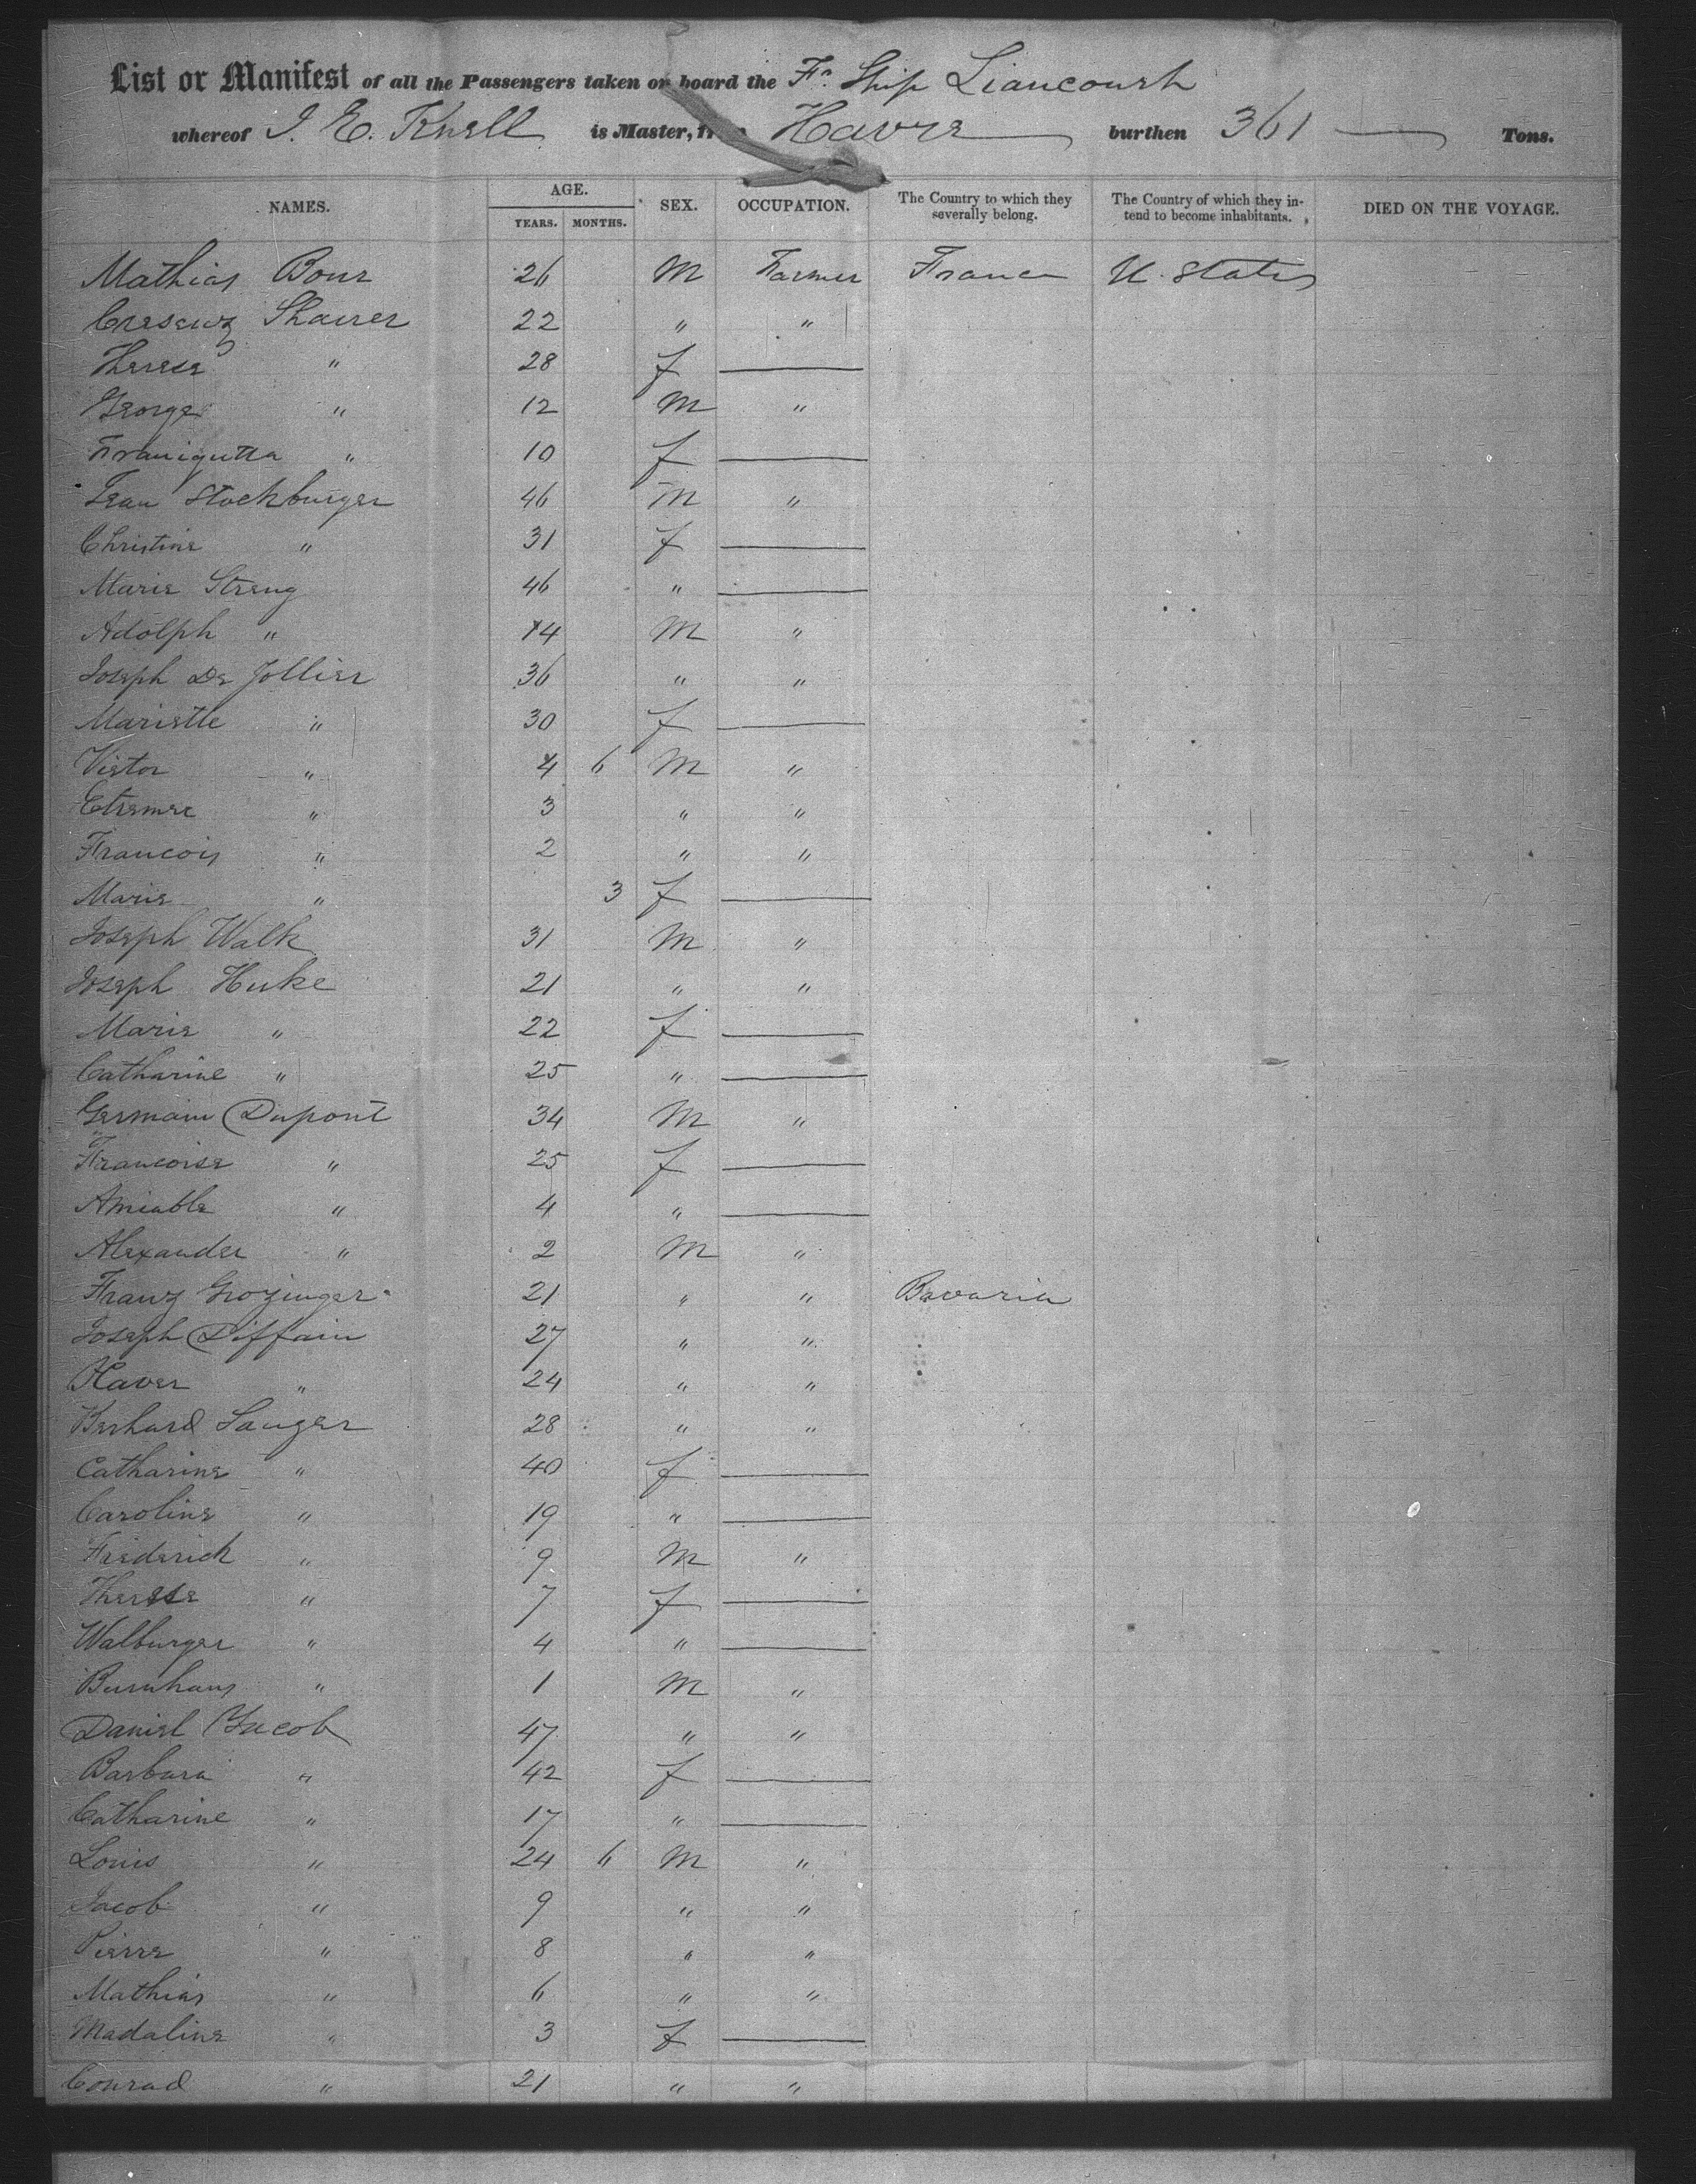 List or Manifest of all the Passengers taken on board the Fr. Ship Liancourt
whereof J. E. Knell is Master, from Havre burthen 361 Tons.
NAMES. AGE. YEARS. MONTHS. SEX. OCCUPATION. The Country to which they severally belong. The Country of which they intend to become inhabitants. DIED ON THE VOYAGE.
Mathias Bour 26 M Farmer France U. States
Cresenz Shairer 22 " "
Therese " 28 f —
George " 12 M "
" 10 f —
Jean Stockburger 46 M "
Christine " 31 f —
Marie Streng 46 " —
Adolph " 14 M "
Joseph De Jollier 36 " "
Maristle " 30 f —
Victor " 4 6 M "
" 3 " "
Francois " 2 " "
Marie " 3 f —
Joseph Walk 31 M "
Joseph Huke 21 " "
Marie " 22 f —
Catharine " 25 " —
Germain Dupont 34 M "
Francoise " 25 f —
Amiable " 4 " —
Alexander " 2 M "
Franz Grozinger 21 " " Bavaria
Joseph Diffain 27 " "
Xaver " 24 " "
Berhard Sanger 28 " "
Catharine " 40 f —
Caroline " 19 " —
Frederick " 9 M "
Therese " 7 f —
Walburger " 4 " —
Burnhans " 1 M "
Daniel Jacob 47 " "
Barbara " 42 f —
Catharine " 17 " —
Louis " 24 6 M "
Jacob " 9 " "
Pierre " 8 " "
Mathias " 6 " "
Madaline " 3 f —
Conrad " 21 " "